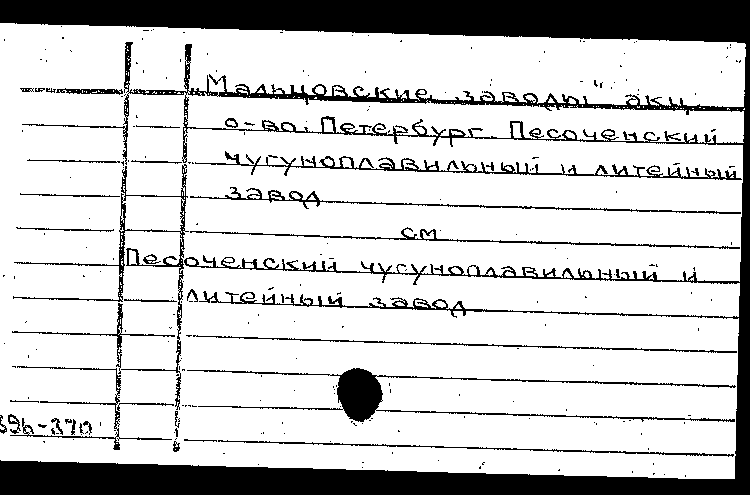 „Мальцовские заводы" акц.
о-во. Петербург. Песоченский
чугуноплавильный и литейный
завод
см
Песоченский чугуноплавильный и
литейный завод
396-370